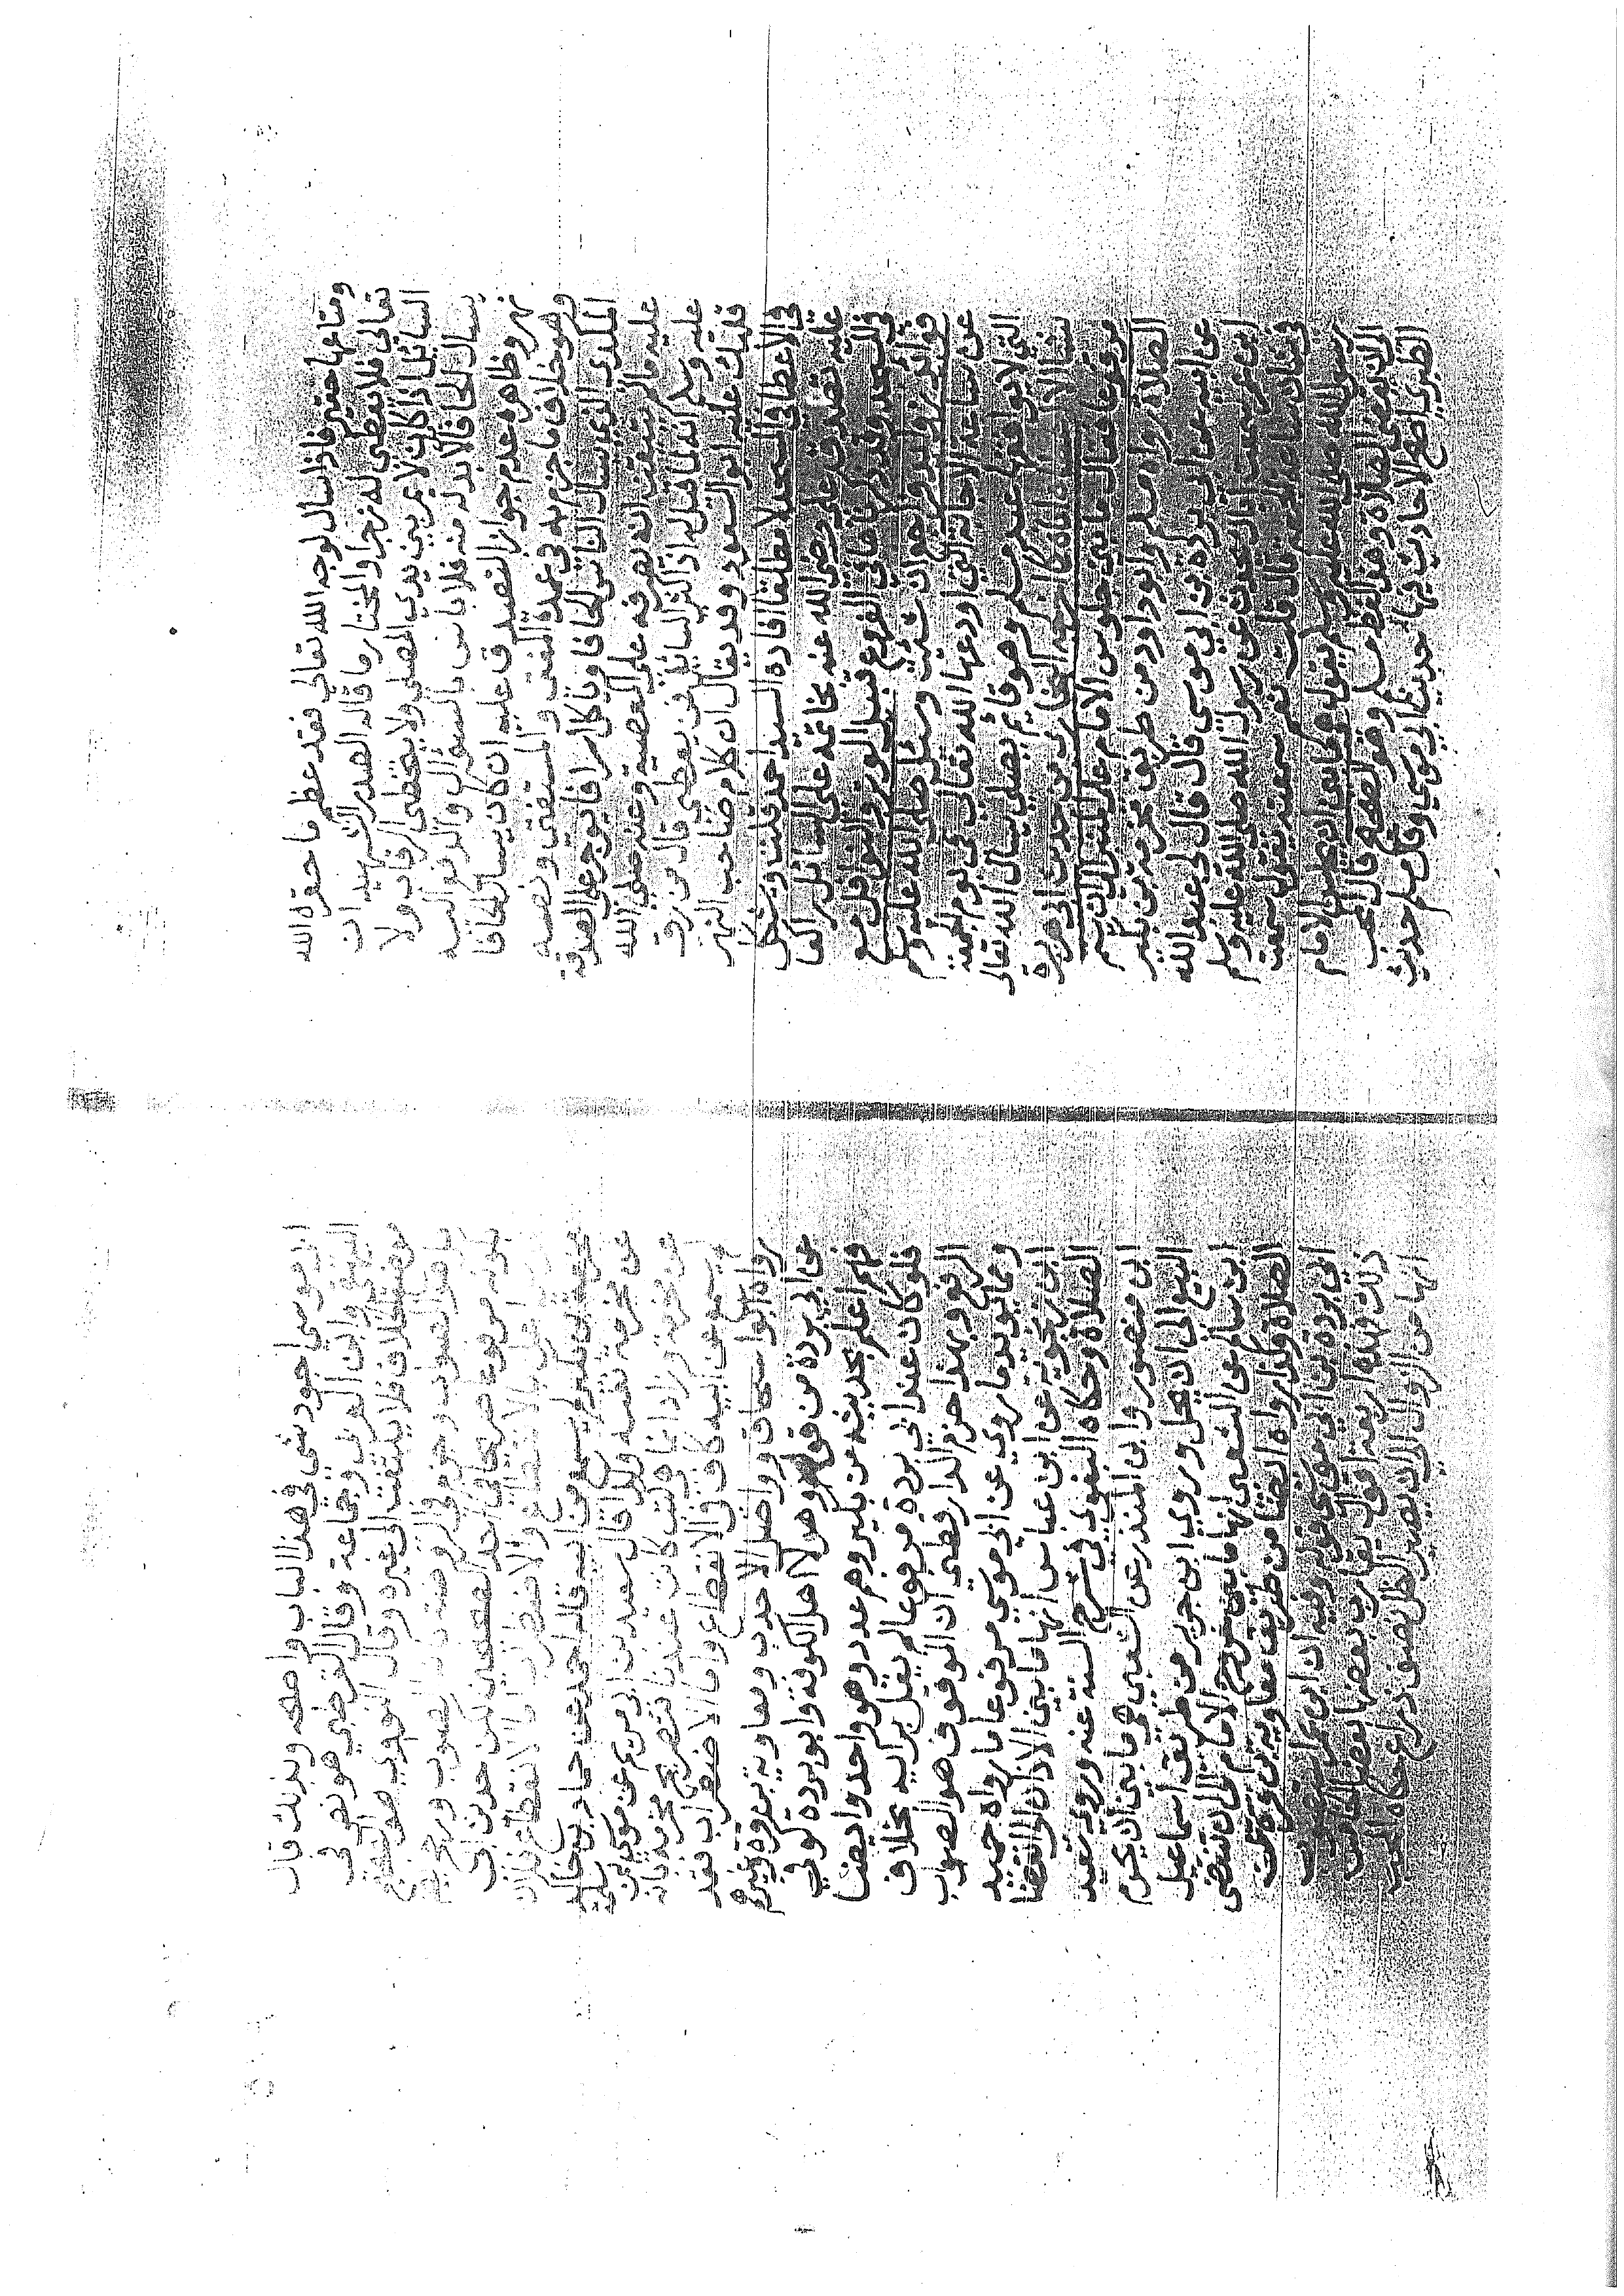 ومتاعها حقير فاذا سال لوجه الله تعالى فقد عظم ما حقره الله
تعالى فلا يعطى له زجرا والمختار ما قاله الصدر الشهيد ان
السائل اذا كان لا يمر بين يدي المصلى ولا يتخطى الرقاب ولا
يسال الحافا لابد له منه فلا باس بالسؤال والدفع اليه
نهر وظاهره عدم جواز التصدق عليه ان كان يسال الحافا
وهو خلاف ما جزم به في عمدة المفتي والمستفتي ونصه
المكدي الذي يسال الناس الحافا وياكل اسرافا يوجر على الصدقة
عليه ما لم يتيقن انه يصرفه على المعصية وعنه صلى الله
عليه وسلم انه لما قيل له اذا كثر السائل فمن يعطى قال من رق
قلبك عليه ابو السعود وقد يقال ان كلام صاحب النهر
في الاعطا في المسجد لا مطلقا افاده السيد احمد قلت ويشكل
عليه تصدق علي رضى الله عنه بخاتمه على السائل راكعا
في المسجد وقد ذكرنا في الفروع قبيل الوتر والنوافل مع
فوائد فراجعه ان شئت وسئل صلى الله عليه وسلم
عن ساعة الاجابة التي اودعها الله تعالى في يوم الجمعة
التي لا يوافقها عبد مسلم وهو قائم يصلي يسال الله تعالى
شيا الا اعطاه اياه كما اخرجه البخاري من حديث ابي هريرة
مرفوعا فقال ما بين جلوس الامام على المنبر الى ان يتم
الصلاة رواه مسلم وابو داود من طريق مخرمة بن بكير
عن ابيه عن ابي بردة بن ابي موسى قال قال لي عبد الله
ابن عمر اسمعت اباك يحدث عن رسول الله صلى الله عليه وسلم
في شان ساعة الجمعة قال قلت نعم سمعته يقول سمعت
رسول الله صلى الله عليه وسلم يقول هي ما بين ان يجلس الامام
الى ان تقضى الصلاة وهو لفظ مسلم وهو الصحيح قال المحب
الطبري اصح الاحاديث فيها حديث ابي موسى وقال مسلم حديث
ابي موسى اجود شي في هذا الباب واصحه وبذلك قال
البيهقي وابن العربي وجماعة وقال القرطبي هو نص في
موضع الخلاف فلا يلتفت الى غيره وقال النووي هو الصحيح
بل هو الصواب وجزم في الروضة بانه الصواب ورجح
بكونه مرفوعا صريحا في احد الصحيحين لكن حديث ابي
موسى اعل بالانقطاع والاضطراب اما الانقطاع فلان
مخرمة بن بكير لم يسمع من ابيه قاله احمد عن حماد بن خالد
عن مخرمة نفسه وكذا قال سعيد بن ابي مريم عن موسى بن سلمة
عن مخرمة وزاد انما هي كتب كانت عندنا
من ابيه كاف في الانقطاع واما الاضطراب فقد
رواه ابو اسحاق وواصل الاحدب ومعاوية بن قرة وغيرهم
عن ابي بردة من قوله وهولاء اهل الكوفة وابو بردة كوفي
فهم اعلم بحديثه من بكير وهم عدد وهو واحد وايضا
فلو كان عند ابي بردة مرفوعا لم يقل برايه بخلاف
الرفع وبهذا جزم الدارقطني ان الموقوف هو الصواب
ومما يويد ما روي عن ابي موسى مرفوعا ما رواه حميد
ابن زنجويه عن ابن عباس انها ما بين الاذان الى انقضا
الصلاة وحكاه البغوي في شرح السنة عنه وروى سعيد
ابن منصور وابن المنذر عن الشعبي هي ما بين ان يحرم
البيع الى ان يحل وروى ابن جرير من طريق اسماعيل
ابن سالم عن الشعبي انها ما بين خروج الامام الى ان تقضى
الصلاة وكذا رواه ايضا من طريق معاوية بن قرة عن
ابي بردة بن ابي موسى قوله وفيه ان ابن عمر استصوب
ذلك فهذه اربعة اقوال يقارب بعضها بعضا
انها من الزوال الى ان يصير الظل نصف ذراع حكاه المحب